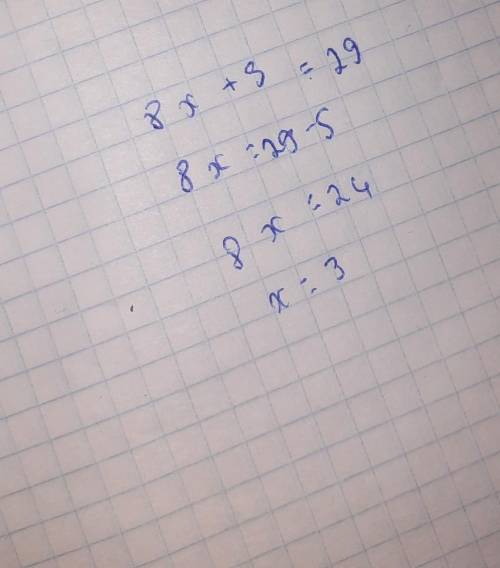 8x + 5 = 29
8x = 29 - 5
8x = 24
x = 3